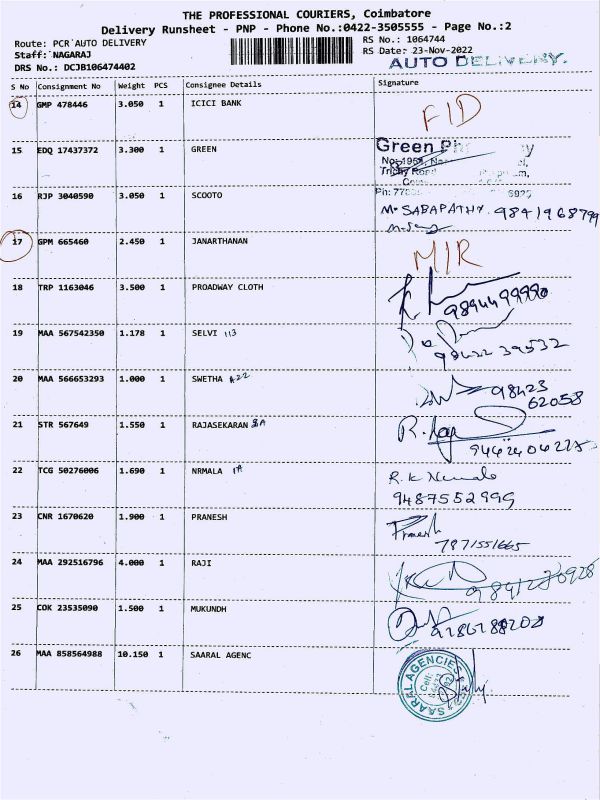 THE PROFESSIONAL COURIERS, Coimbatore
Delivery Runsheet - PNP - Phone No.:0422-3505555 - Page No.:2
Route: PCR AUTO DELIVERY
RS No.: 1064744
Staff: NAGARAJ
RS Date: 23-Nov-2022
DRS No.: DCJB106474402
AUTO DELIVERY.
S No Consignment No Weight PCS Consignee Details Signature
14 GMP 478446 3.050 1 ICICI BANK FID
15 EDQ 17437372 3.300 1 GREEN
Green
Trichy Road
16 RJP 3040590 3.050 1 SCOOTO
M. SABAPATHY. 9841968799
17 GPM 665460 2.450 1 JANARTHANAN MIR
18 TRP 1163046 3.500 1 PROADWAY CLOTH
19 MAA 567542350 1.178 1 SELVI 113
98422 39532
20 MAA 566653293 1.000 1 SWETHA A22
98423
62058
21 STR 567649 1.550 1 RAJASEKARAN
22 TCG 50276006 1.690 1 NRMALA 1A
R. K Nirmala
9487552999
23 CNR 1670620 1.900 1 PRANESH
Pranesh
7871551665
24 MAA 292516796 4.000 1 RAJI
25 COK 23535090 1.500 1 MUKUNDH
26 MAA 858564988 10.150 1 SAARAL AGENC
SAARAL AGENCIES
Cell: